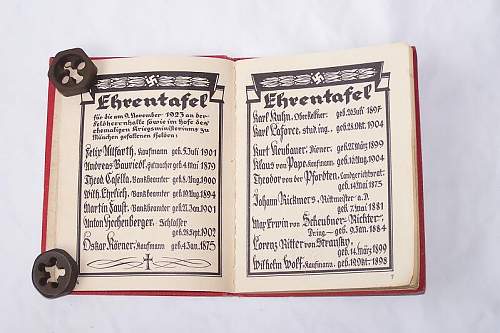 Ehrentafel
für die am 9. November 1923 an der
Feldherrnhalle sowie im Hofe des
ehemaligen Kriegsministeriums zu
München gefallenen Helden:
Felix Allfarth, Kaufmann geb. 5. Juli 1901
Andreas Bauriedl, Hutmacher geb. 4. Mai 1879
Theod. Casella, Bankbeamter geb. 8. Aug. 1900
Wilh. Ehrlich, Bankbeamter geb. 19. Aug. 1894
Martin Faust, Bankbeamter geb. 27. Jan. 1901
Anton Hechenberger, Schlosser
geb. 28. Sept. 1902
Oskar Körner, Kaufmann geb. 4. Jan. 1875
Ehrentafel
Karl Kuhn, Oberkellner, geb. 26. Juli 1897
Karl Laforce, stud. ing., geb. 28. Okt. 1904
Kurt Neubauer, Diener, geb. 27. März 1899
Klaus von Pape, Kaufmann, geb. 16. Aug. 1904
Theodor von der Pfordten, Landgerichtsrat,
geb. 14. Mai 1873
Johann Rickmers, Rittmeister a. D.
geb. 7. Mai 1881
Max Erwin von Scheubner-Richter,
Dr. ing. geb. 9. Jan. 1884
Lorenz Ritter von Stransky,
geb. 14. März 1899
Wilhelm Wolf, Kaufmann, geb. 19. Okt. 1898
7